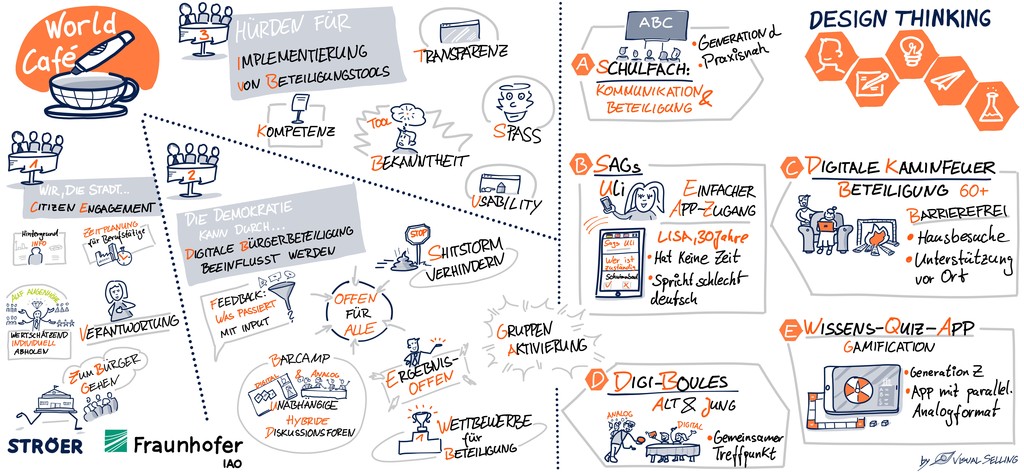 World
Café
3
HÜRDEN FÜR
IMPLEMENTIERUNG
VON BETEILIGUNGSTOOLS
TRANSPARENZ
KOMPETENZ
TOOL
BEKANNTHEIT
SPASS
USABILITY
1
WIR, DIE STADT...
CITIZEN ENGAGEMENT
Hintergrund
INFO
ZEITPLANUNG
für Berufstätige
AUF AUGENHÖHE
WERTSCHÄTZEND
INDIVIDUELL
ABHOLEN
VERANTWORTUNG
ZUM BÜRGER
GEHEN
STRÖER
Fraunhofer
IAO
2
DIE DEMOKRATIE
KANN DURCH...
DIGITALE BÜRGERBETEILIGUNG
BEEINFLUSST WERDEN
STOP
SHITSTORM
VERHINDERN
FEEDBACK:
WAS PASSIERT
MIT INPUT
OFFEN
FÜR
ALLE
BARCAMP
DIGITAL & ANALOG
UNABHÄNGIGE
HYBRIDE
DISKUSSIONSFOREN
ERGEBNIS-
OFFEN
1
WETTBEWERBE
für
BETEILIGUNG
GRUPPEN
AKTIVIERUNG
DESIGN THINKING
ABC
A SCHULFACH:
KOMMUNIKATION &
BETEILIGUNG
• GENERATION α
• Praxisnah
B SAGS
ULI
EINFACHER
APP-ZUGANG
Sags Uli
Wer ist
zuständig
LISA, 30 Jahre
• Hat Keine Zeit
• Spricht schlecht
deutsch
C DIGITALE KAMINFEUER
BETEILIGUNG 60+
BARRIEREFREI
• Hausbesuche
• Unterstützung
vor Ort
D DIGI-BOULES
ALT & JUNG
ANALOG
DIGITAL
• Gemeinsamer
Treffpunkt
E WISSENS-QUIZ-APP
GAMIFICATION
• Generation Z
• App mit parallel.
Analogformat
by VISUAL SELLING